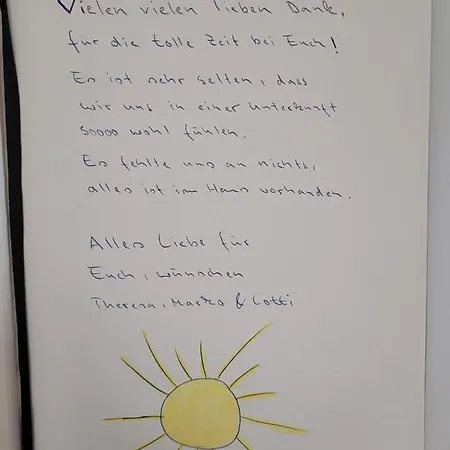 Vielen vielen lieben Dank,
für die tolle Zeit bei Euch!
Es ist sehr selten, dass
wir uns in einer Unterkunft
soooo wohl fühlen.
Es fehlte uns an nichts,
alles ist im Haus vorhanden.
Alles Liebe für
Euch, wünschen
Theresa, Marko & Lotti